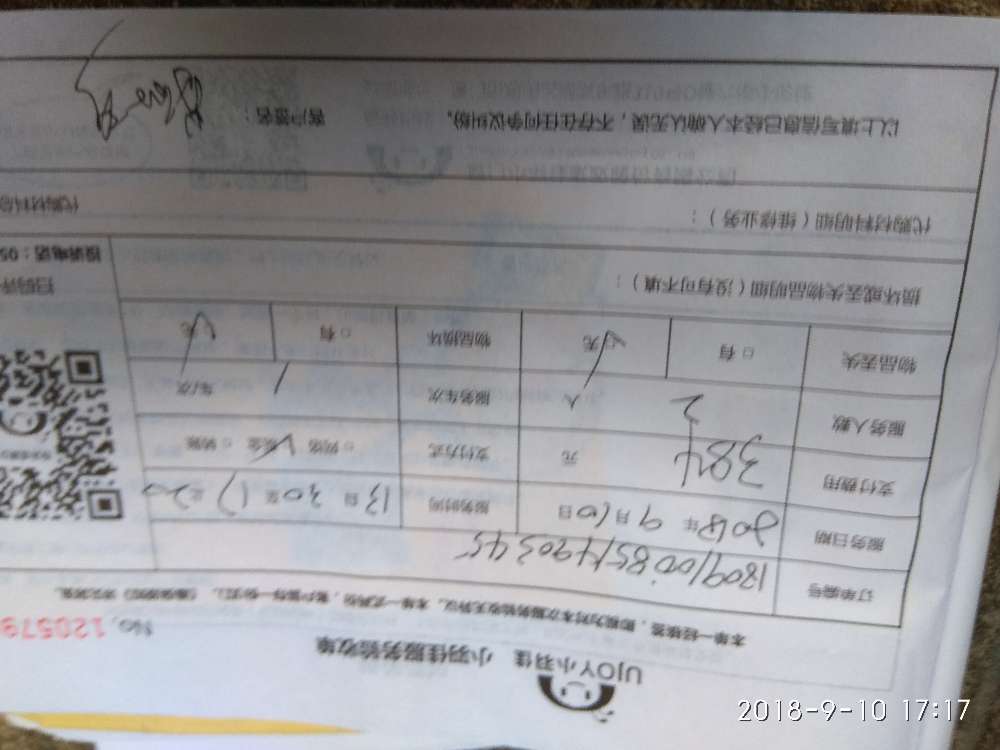 UJOY小羽佳 小羽佳服务验收单
No. 120579
本单一经签签,即视为对本次服务验收无异议。本单一式两份,客户留存一份(红),
订单编号 1809100851490345
服务日期 2018年 9月10日 服务时间 13 30 17 20
支付费用 384 元 支付方式 □ 网络 √现金 □ 转账
服务人数 2 人 服务车次 / 车/次
物品丢失 □ 有 √无 物品损坏 □ 有 √无
损坏或丢失物品明细(没有可不填):
代购材料明细(维修业务): 代购材料总
扫码评
投诉电话:05
以上填写信息已经本人确认无误,不存在任何争议纠纷。 客户签名:
2018-9-10 17:17